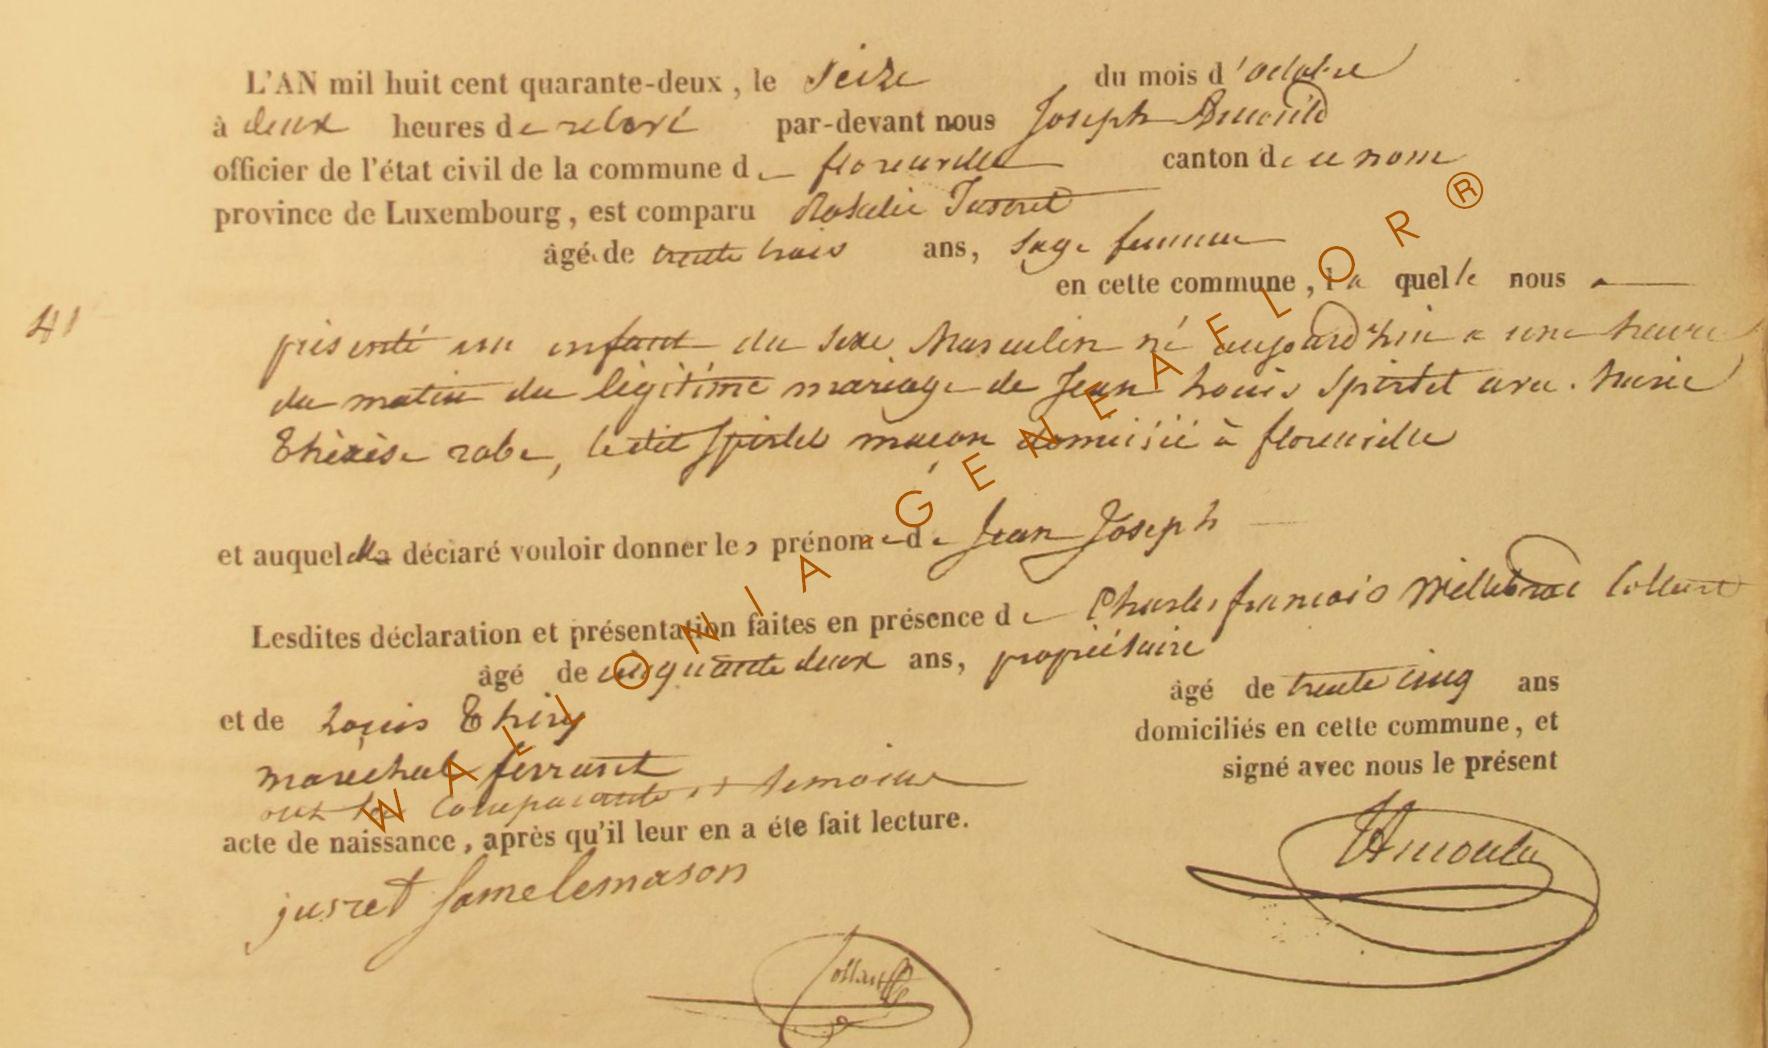 L'AN mil huit cent quarante-deux, le seize du mois d'octobre
à deux heures de relevé par-devant nous Joseph Arnould
officier de l'état civil de la commune de florenville canton de ce nom
province de Luxembourg, est comparu Rosalie Jusret
âgé de trente trois ans, sage femme
en cette commune, laquelle nous a
41
présenté un enfant du sexe Masculin né aujourd'hui a une heure
du matin du légitime mariage de Jean Louis Spirlet avec Marie
Thérèse robe, le dit Spirlet maçon domicilié à florenville
et auquel elle a déclaré vouloir donner les prénoms de Jean Joseph
Lesdites déclaration et présentation faites en présence de Charles françois Willebrod Collard
âgé de cinquante deux ans, propriétaire
et de Louis Thiry âgé de trente cinq ans
maréchal ferrant domiciliés en cette commune, et
ont la comparante et témoins signé avec nous le présent
acte de naissance, après qu'il leur en a éte fait lecture.
jusret fame lemason
Arnould
WALLONIA GENEAFLOR ®